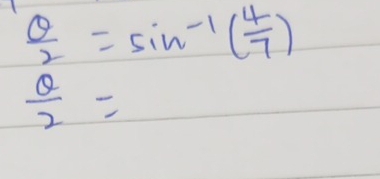 θ/2 = sin⁻¹(4/7)
θ/2 =